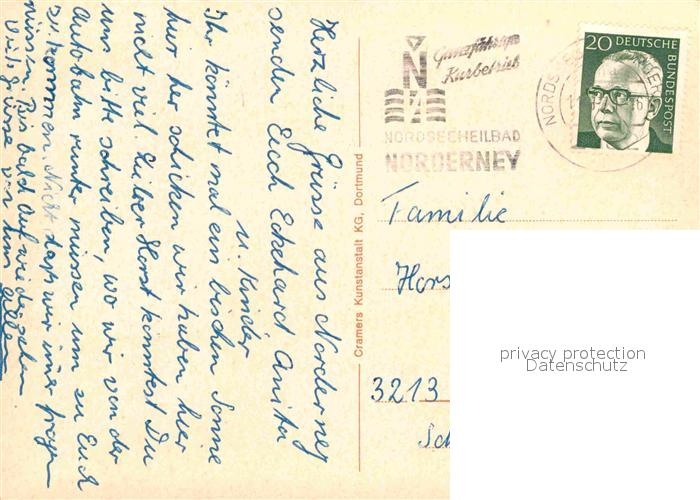 Herzliche Grüsse aus Norderney
senden Euch Eckehard Anita
u. Kinder
Ihr könntet mal ein bischen Sonne
hier her schicken wir haben hier
nicht viel. Lieber Horst könntest Du
uns bitte schreiben, wo wir von der
Autobahn runter müssen um zu Euch
zu kommen. Nicht daß wir imer fragen
müssen. Bis bald auf wiedersehen
Viele Grüsse von
Cramers Kunstanstalt KG, Dortmund
Ganzjähriger
Kurbetrieb
N
NORDSEEHEILBAD
NORDERNEY
20 DEUTSCHE
BUNDESPOST
Familie
Hors
3213
privacy protection
Datenschutz